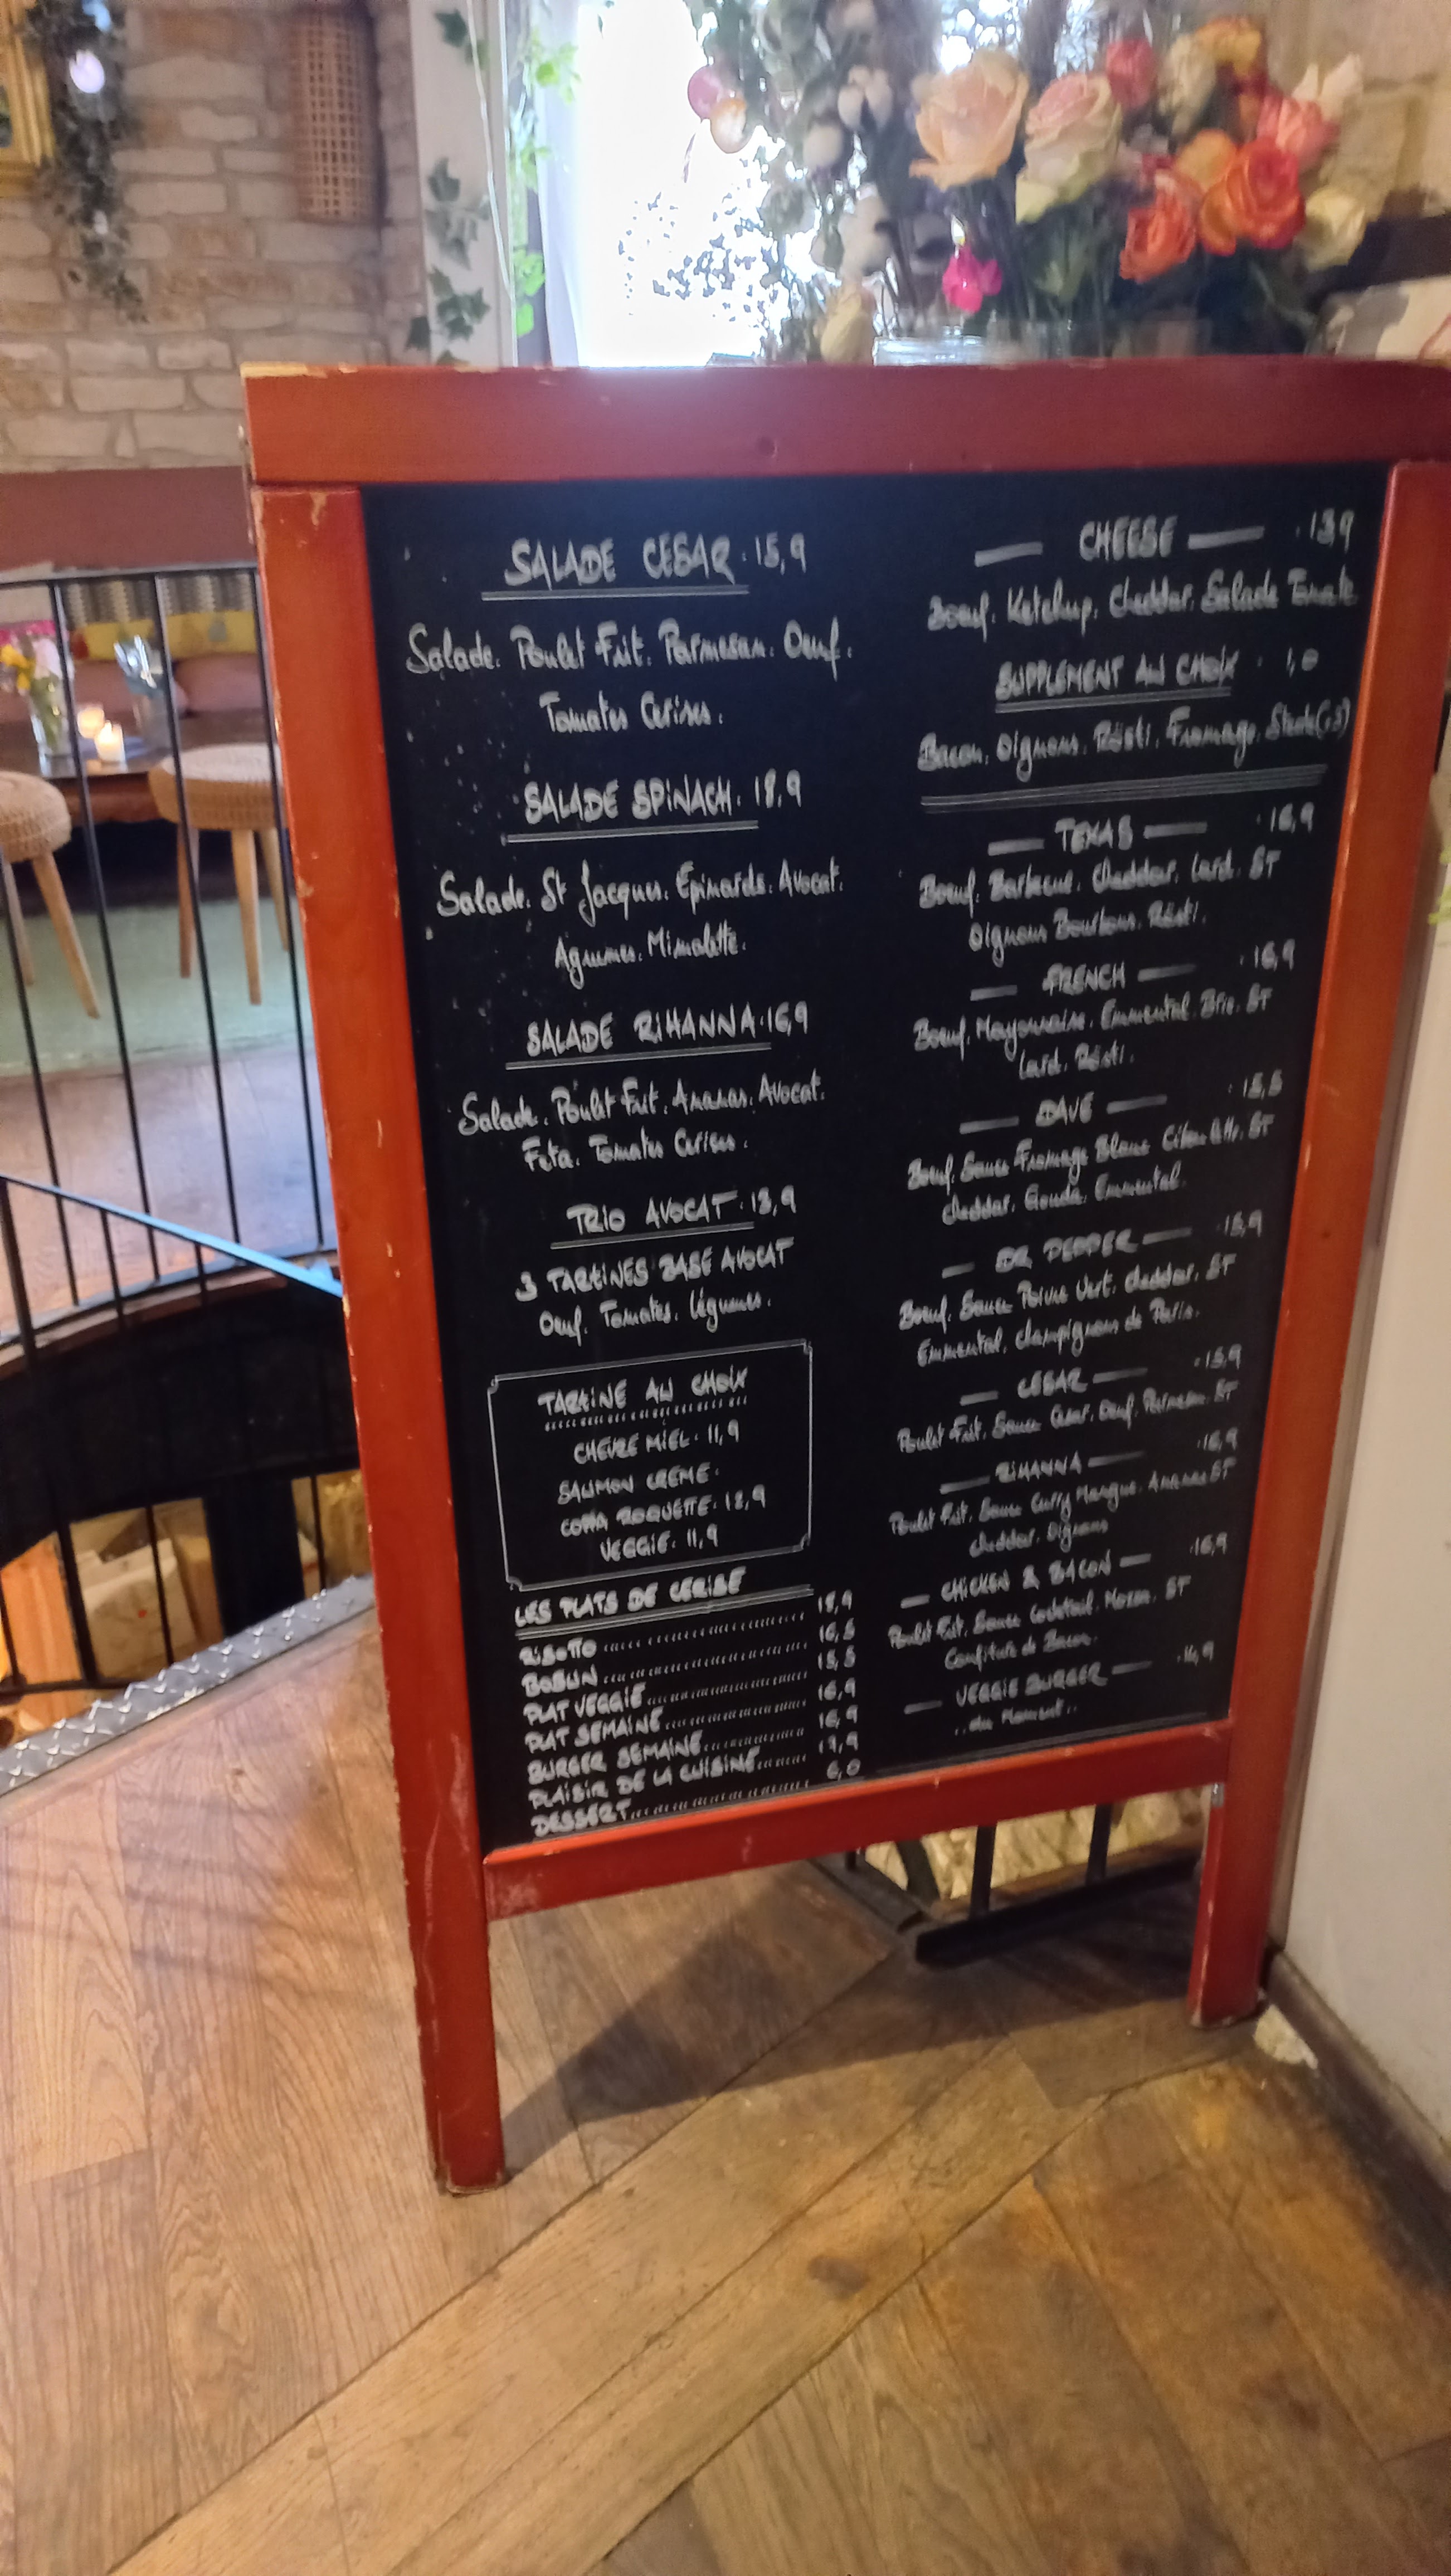 SALADE CESAR. 15,9
Salade. Poulet Frit. Parmesan. Oeuf.
Tomates Cerises.
SALADE SPINACH. 18,9
Salade. St Jacques. Epinards. Avocat.
Agrumes. Mimolette.
SALADE RIHANNA. 16,9
Salade. Poulet Frit. Ananas. Avocat.
Feta. Tomates Cerises.
TRIO AVOCAT. 13,9
3 TARTINES BASE AVOCAT
Oeuf. Tomates. Légumes.
TARTINE AU CHOIX
CHEVRE MIEL. 11,9
SAUMON CREME.
COPPA ROQUETTE. 12,9
VEGGIE. 11,9
LES PLATS DE CERISE
RISOTTO 18,9
BOBUN 16,5
PLAT VEGGIE 15,5
PLAT SEMAINE 16,9
BURGER SEMAINE 16,9
PLAISIR DE LA CUISINE 19,9
DESSERT 6,0
CHEESE . 13,9
Boeuf. Ketchup. Cheddar. Salade Tomate
SUPPLEMENT AU CHOIX . 1,0
Bacon. Oignons. Rösti. Fromage. Steak(.3)
TEXAS . 16,9
Boeuf. Barbecue. Cheddar. Lard. ST
Oignons Bourbons. Rösti.
FRENCH . 16,9
Boeuf. Mayonnaise. Emmental. Brie. ST
Lard. Rösti.
DAVE . 15,5
Boeuf. Sauce Fromage Blanc Ciboulette. ST
Cheddar. Gouda. Emmental.
DR PEPPER . 15,9
Boeuf. Sauce Poivre Vert. Cheddar. ST
Emmental. Champignons de Paris.
CESAR . 15,9
Poulet Frit. Sauce Cesar. Oeuf. Parmesan. ST
RIHANNA . 16,9
Poulet Frit. Sauce Curry Mangue. Ananas ST
Cheddar. Oignons
CHICKEN & BACON . 16,9
Poulet Frit. Sauce Cocktail. Mozza. ST
Confiture de Bacon.
VEGGIE BURGER . 14,9
..du Moment..